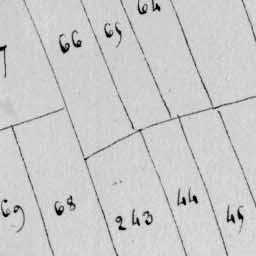 64
65
66
7
69
68
243
44
45